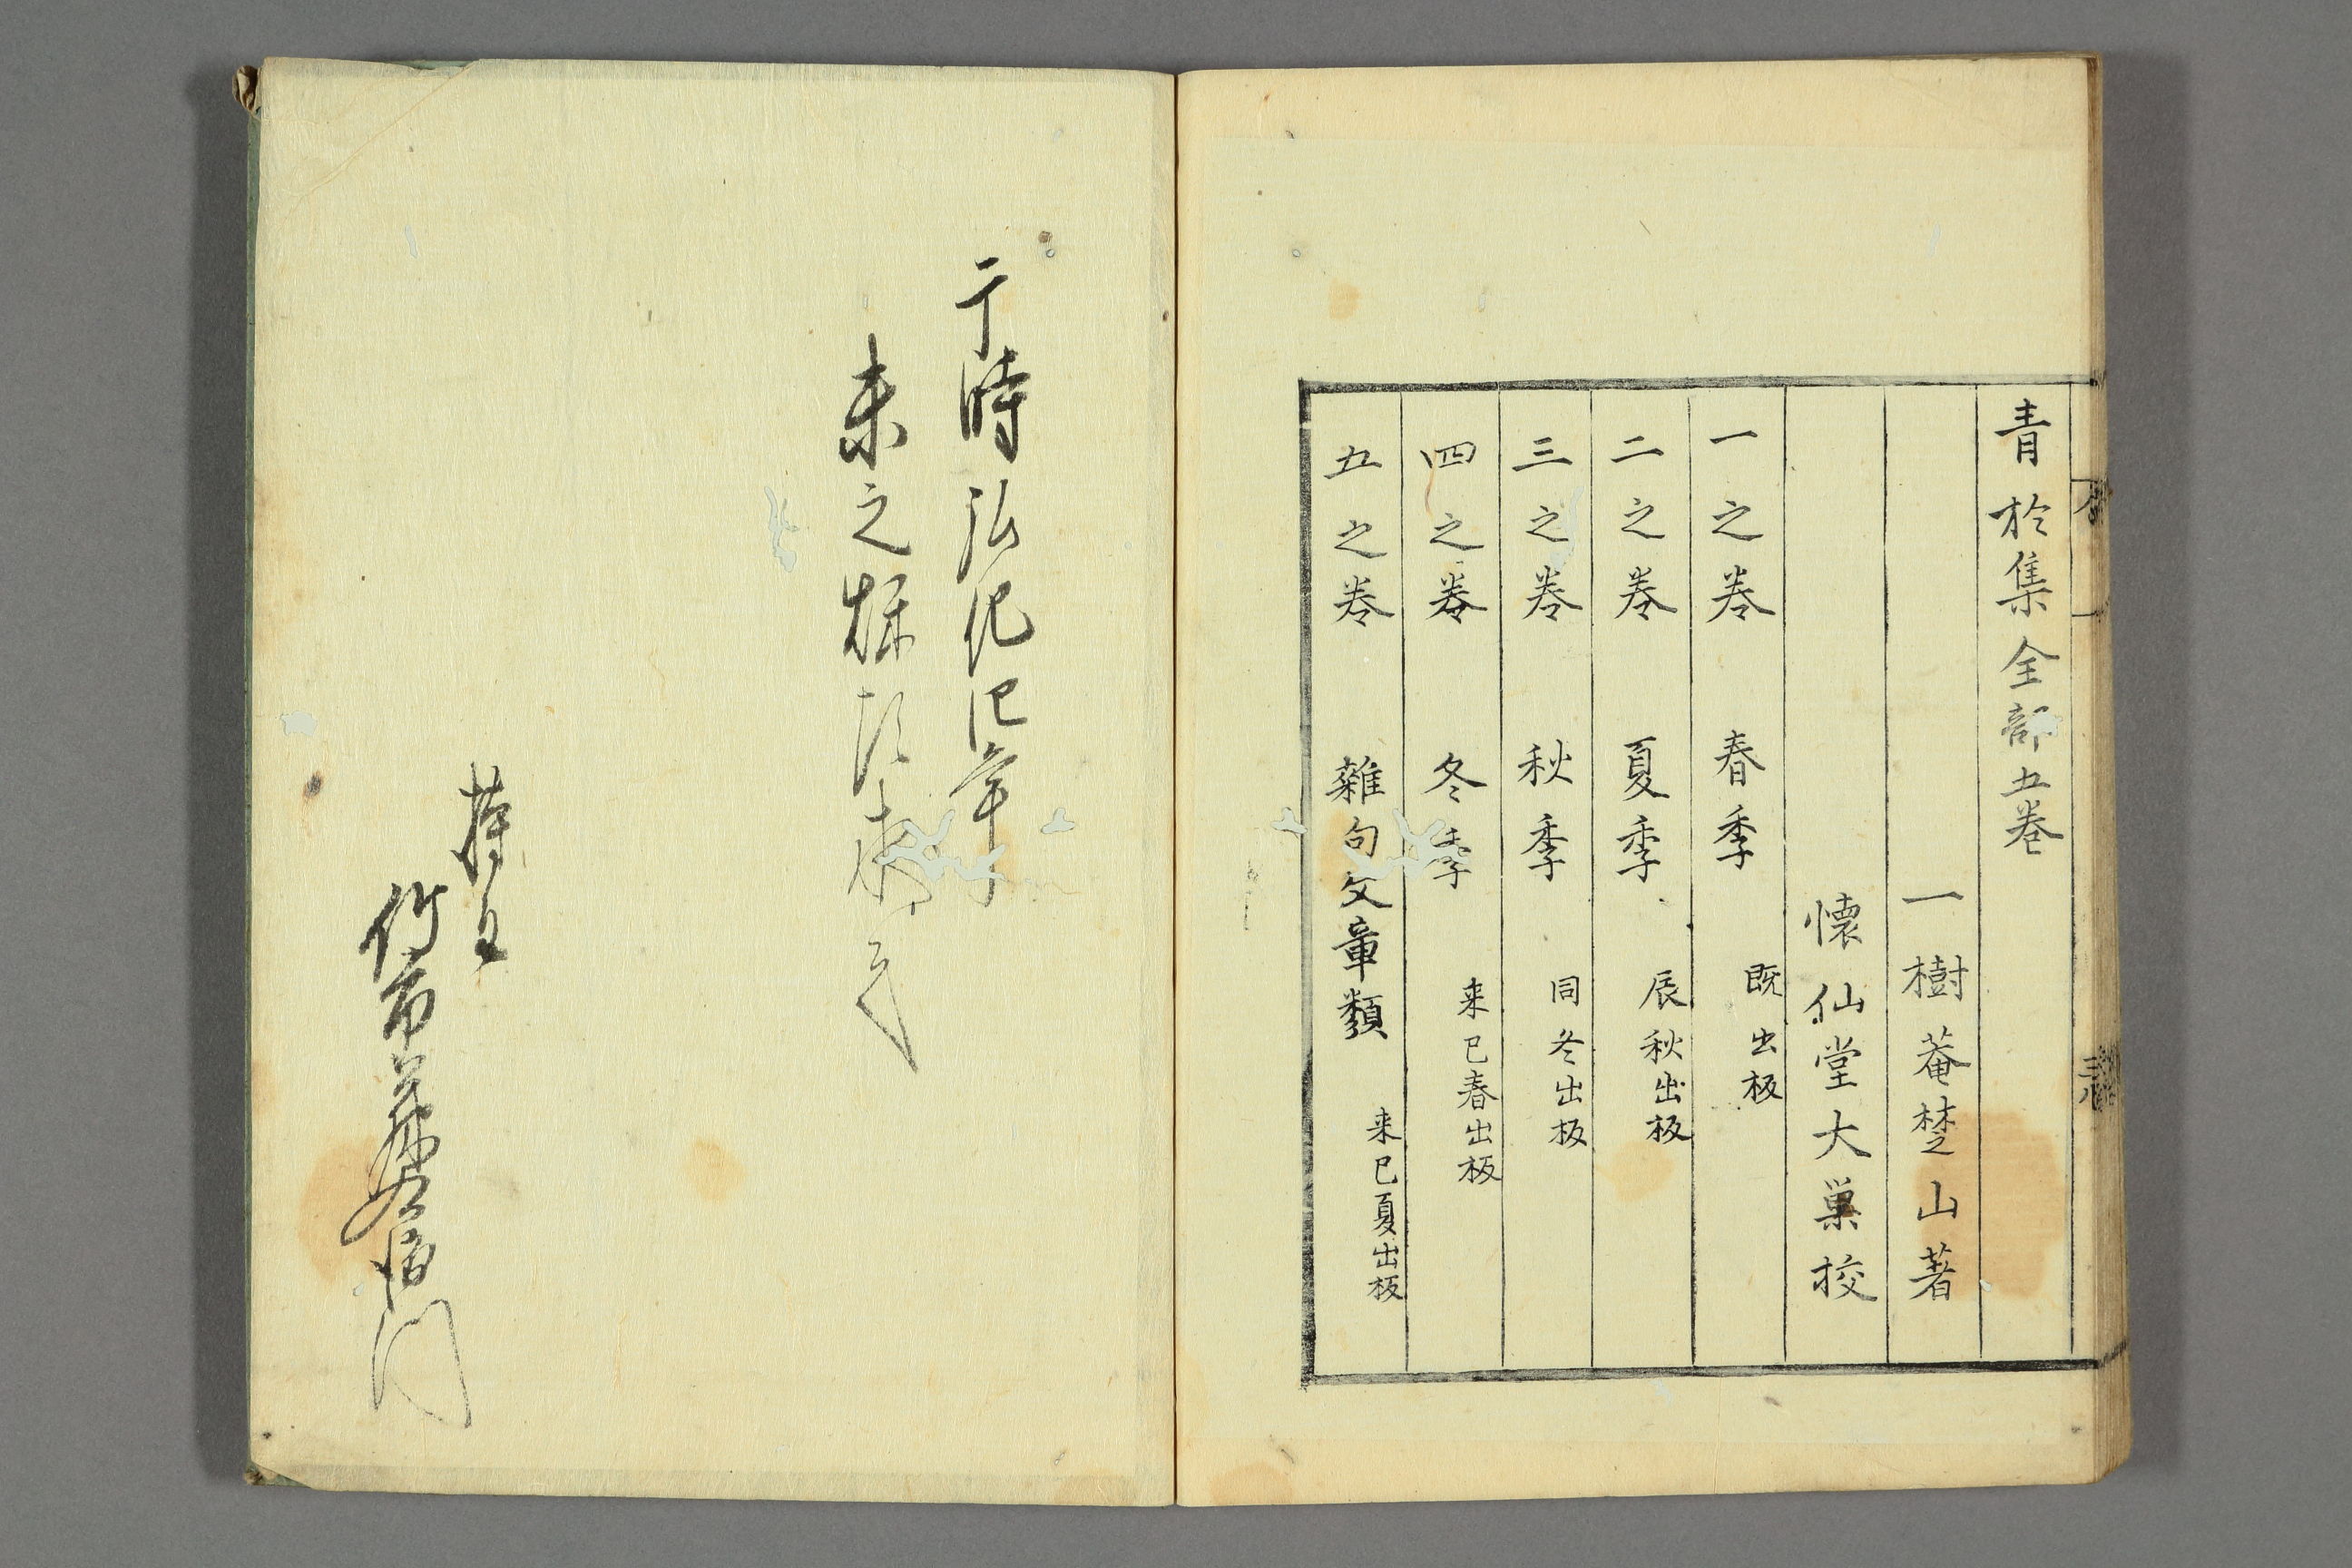 青於集全部五巻
一樹菴楚山著
懐仙堂大巣校
一之巻 春季 既出板
二之巻 夏季 辰秋出板
三之巻 秋季 同冬出板
四之巻 冬季 来巳春出板
五之巻 雜句文章類 来巳夏出板
于時弘化四年
未之
持主
竹市 門